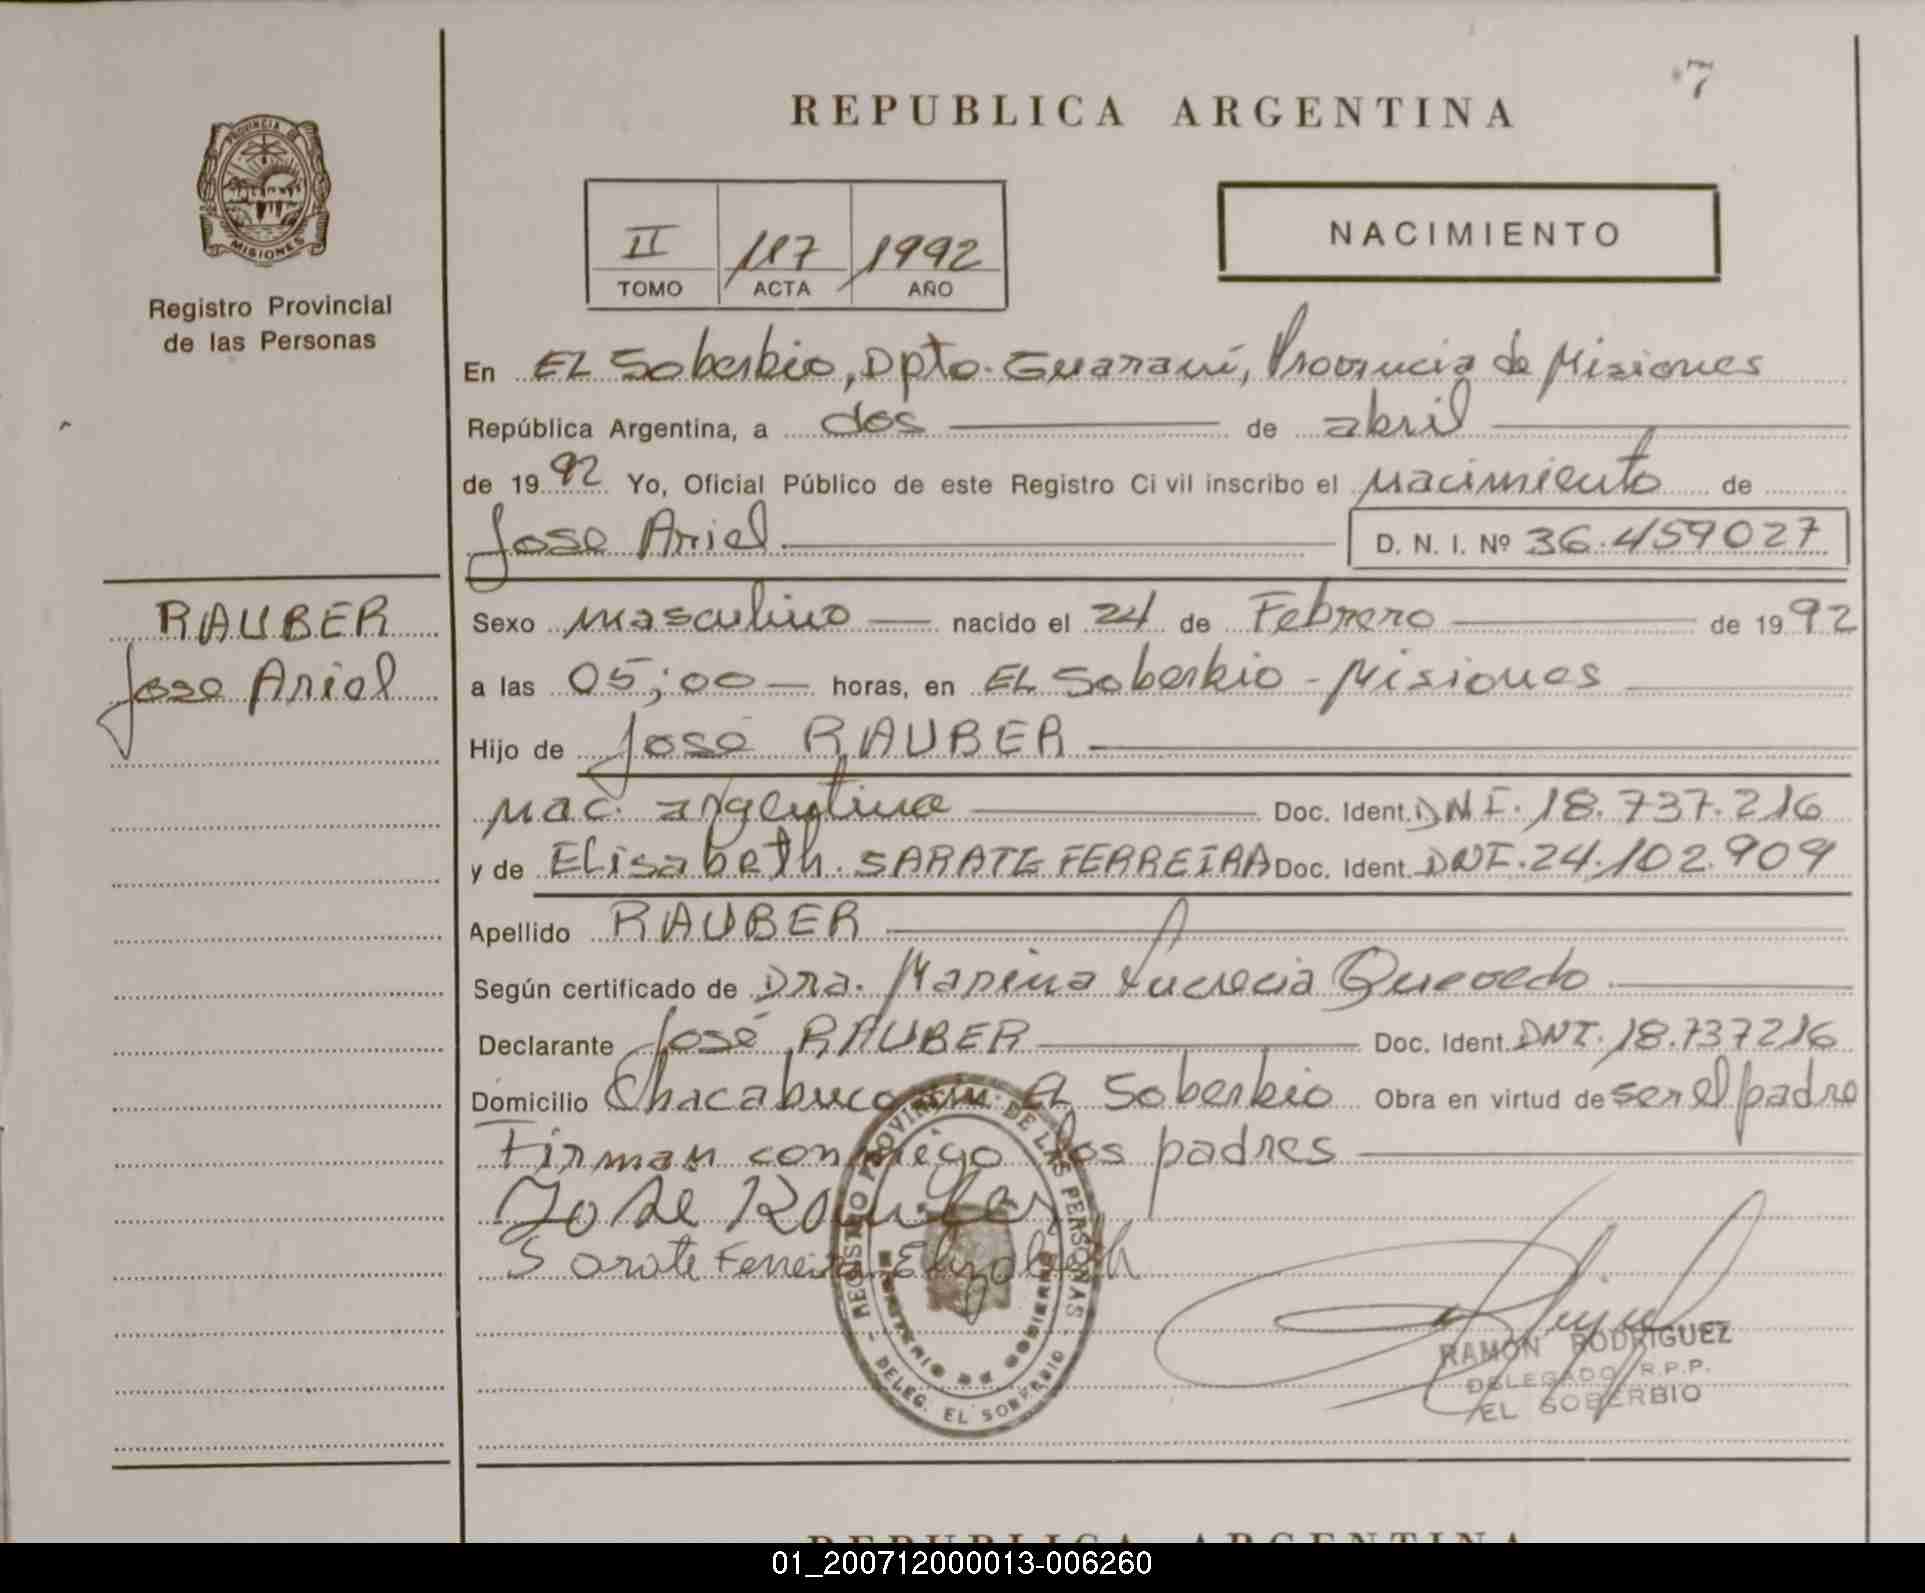 7
REPUBLICA ARGENTINA
PROVINCIA DE
MISIONES
Registro Provincial
de las Personas
II 117 1992
TOMO ACTA AÑO
NACIMIENTO
En EL Soberbio, Dpto. Guaraní, Provincia de Misiones
República Argentina, a dos de abril
de 1992 Yo, Oficial Público de este Registro Ci vil inscribo el nacimiento de
Jose Ariel D. N. I. Nº 36.459027
RAUBER
Jose Ariel
Sexo masculino nacido el 24 de Febrero de 1992
a las 05;00 horas, en EL Soberbio - Misiones
Hijo de José RAUBER
nac. argentina Doc. Ident. DNI. 18.737.216
y de Elisabeth. SARATE FERREIRA Doc. Ident. DNI. 24.102.909
Apellido RAUBER
Según certificado de Dra. Marina Lucrecia Quevedo
Declarante José RAUBER Doc. Ident. DNI. 18.737216
Domicilio Chacabuco EL Soberbio Obra en virtud de ser el padre
Firman conmigo los padres
Jose Rauber
Sarate Ferreira Elizabeth
REGISTRO PROVINCIAL DE LAS PERSONAS
MINISTERIO DE GOBIERNO
DELEG. EL SOBERBIO
RAMON RODRIGUEZ
DELEGADO R.P.P.
EL SOBERBIO
REPUBLICA ARGENTINA
01_200712000013-006260